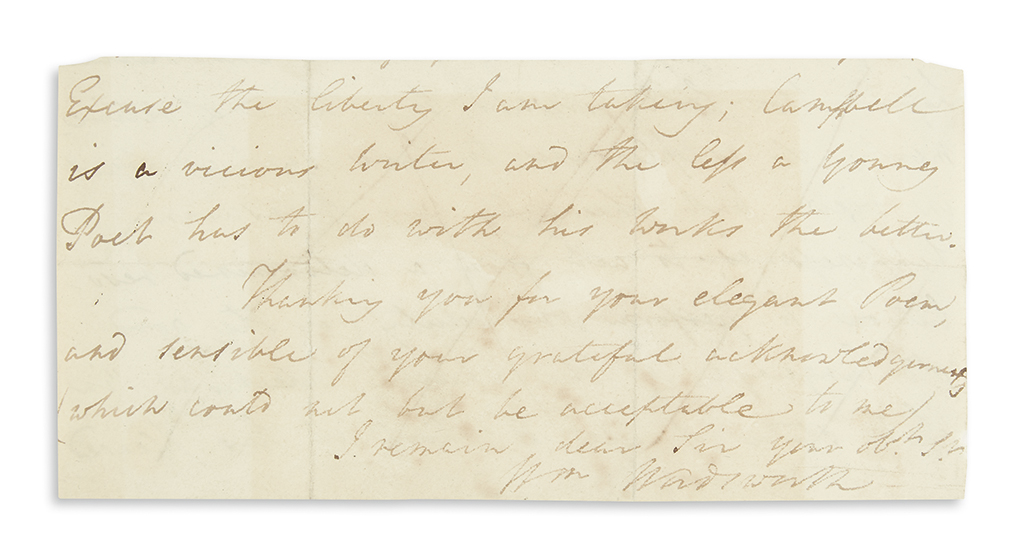 Excuse the liberty I am taking; Campbell
is a vicious Writer, and the less a Young
Poet has to do with his Works the better.
Thanking you for your elegant Poem,
and sensible of your grateful acknowledgements
(which could not but be acceptable to me)
I remain dear Sir your obt. Sr.
Wm Wordsworth